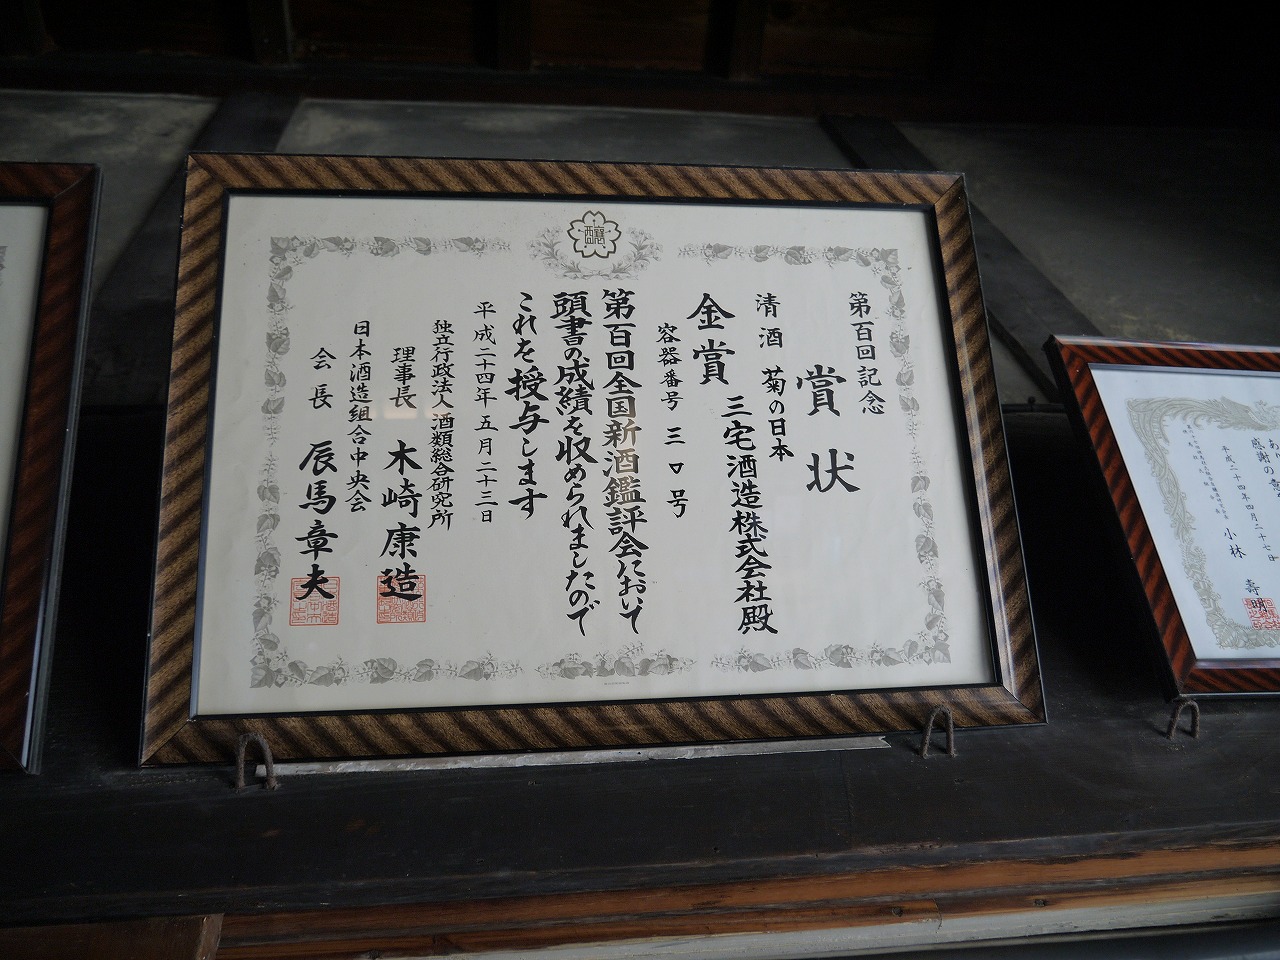 醸
第百回記念
賞状
清酒 菊の日本
三宅酒造株式会社殿
金賞
容器番号 三〇号
第百回全国新酒鑑評会において
頭書の成績を収められましたので
これを授与します
平成二十四年五月二十三日
独立行政法人 酒類総合研究所
理事長 木崎康造
日本酒造組合中央会
会長 辰馬章夫
感謝の意
平成二十四年四月二十七日
小林 壽明